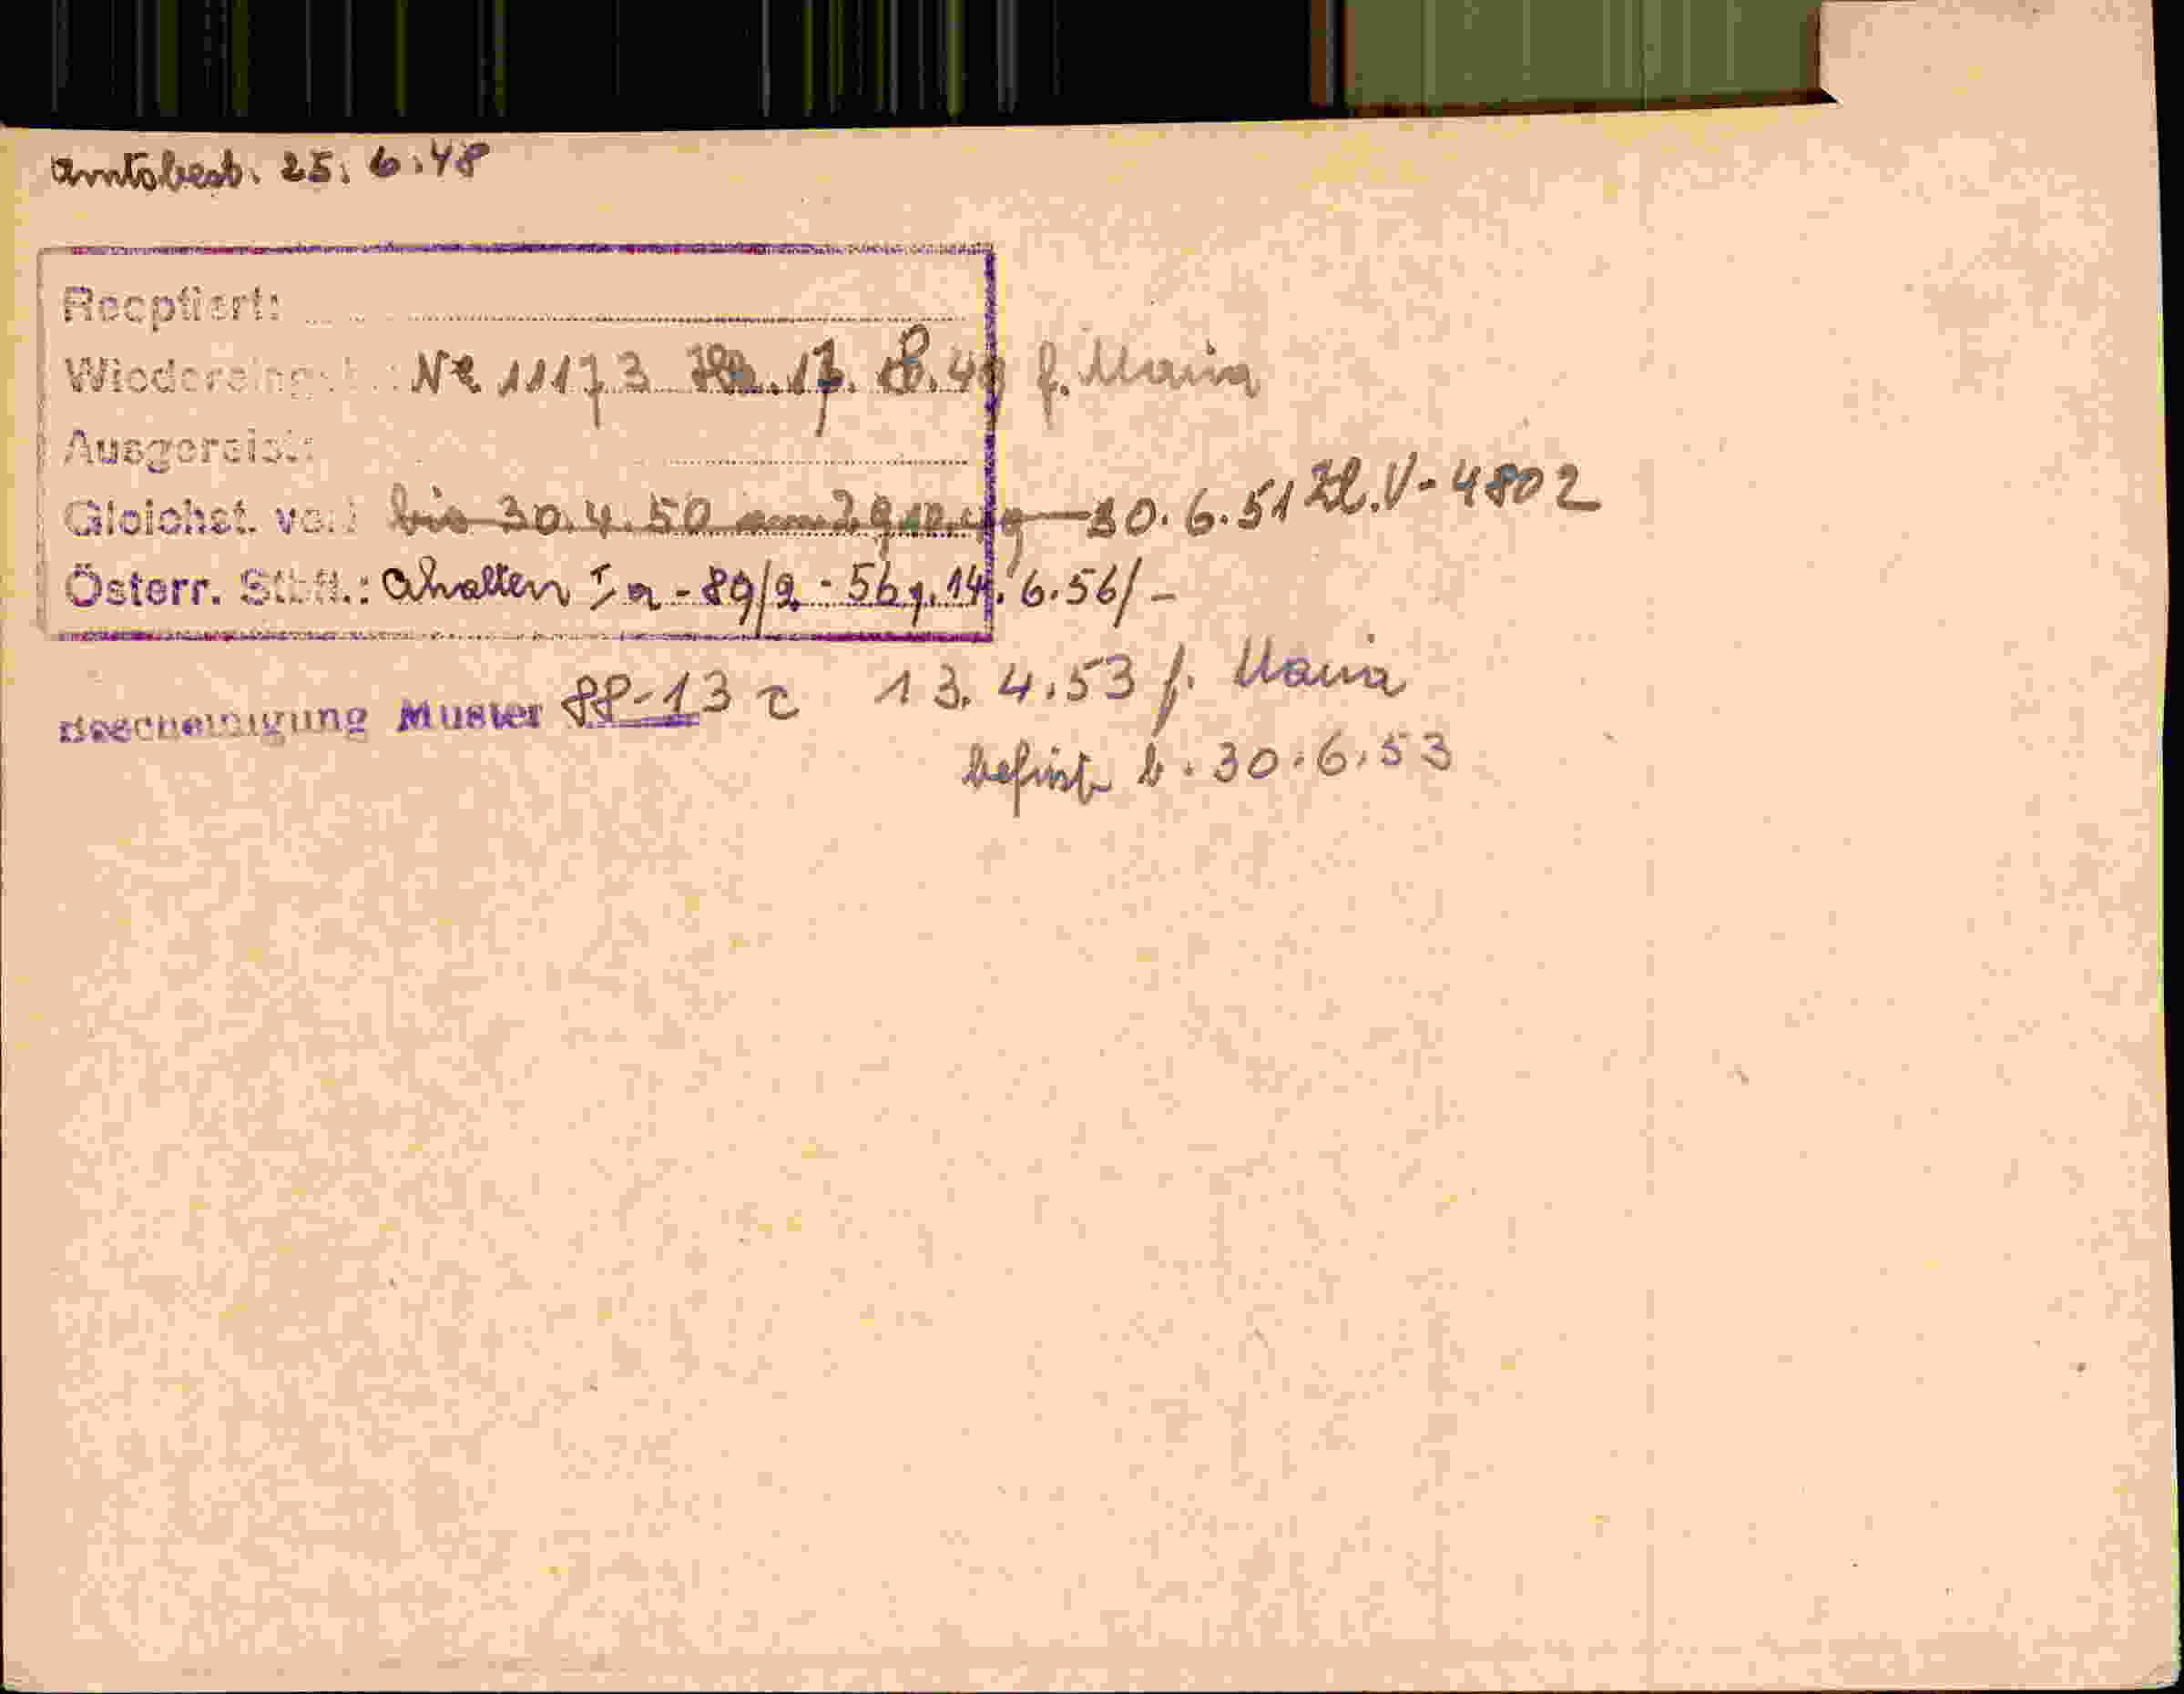 Amtsbest. 25. 6. 48
Reoptiert:
Nr 11173 17. 8. 49 f. Maria
Ausgereist:
Gleichst. bis 30. 4. 50 am 29.12.49 30. 6. 51 Zl. V-4802
Österr. Stb.: erhalten I a - 89/2 - 56 v. 14. 6. 56/-
Bescheinigung Muster 88-13 c 13. 4. 53 f. Maria
befrist. b. 30. 6. 53